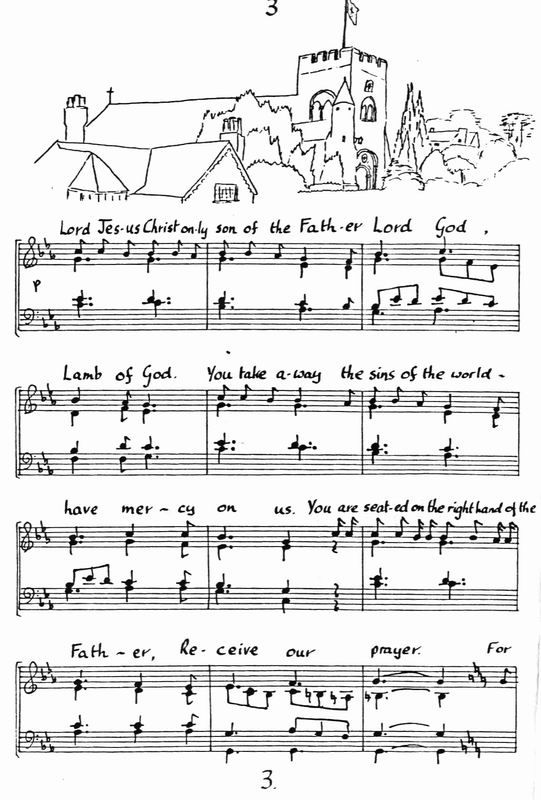 3
Lord Jes-us Christ on-ly son of the Fath-er Lord God ,
p
Lamb of God. You take a-way the sins of the world -
have mer-cy on us. You are seat-ed on the right hand of the
Fath-er, Re-ceive our prayer. For
3.